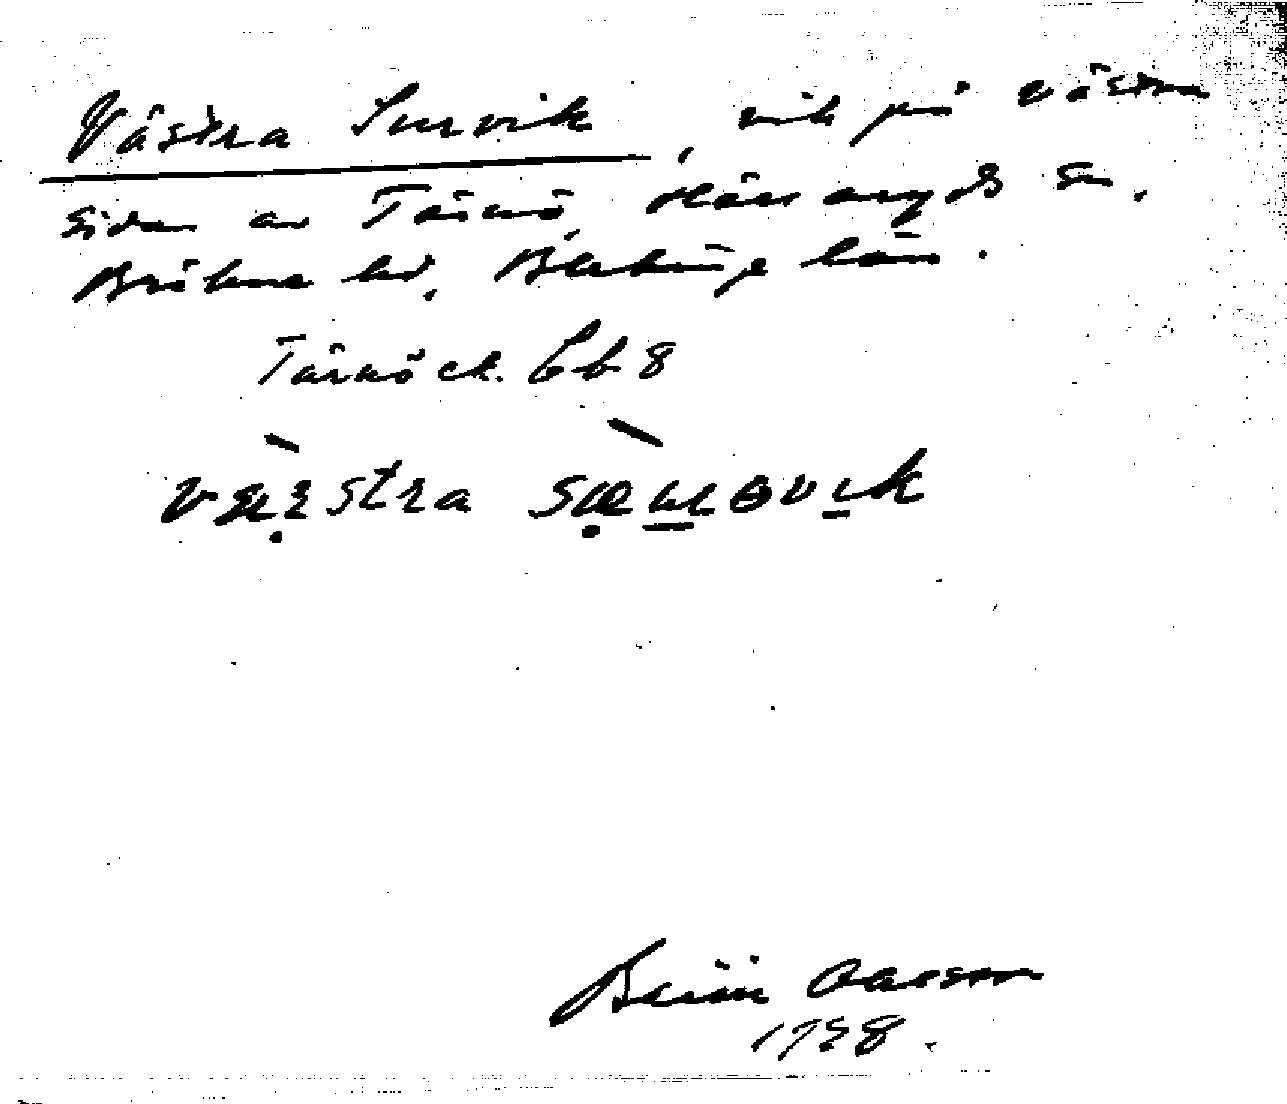 Västra Survik, vik på västra
sidan av Tärnö, Hällaryds sn.
Bräkne hd, Blekinge län.
Tärnö ek. Cb 8
væstra
Olsson
1928.